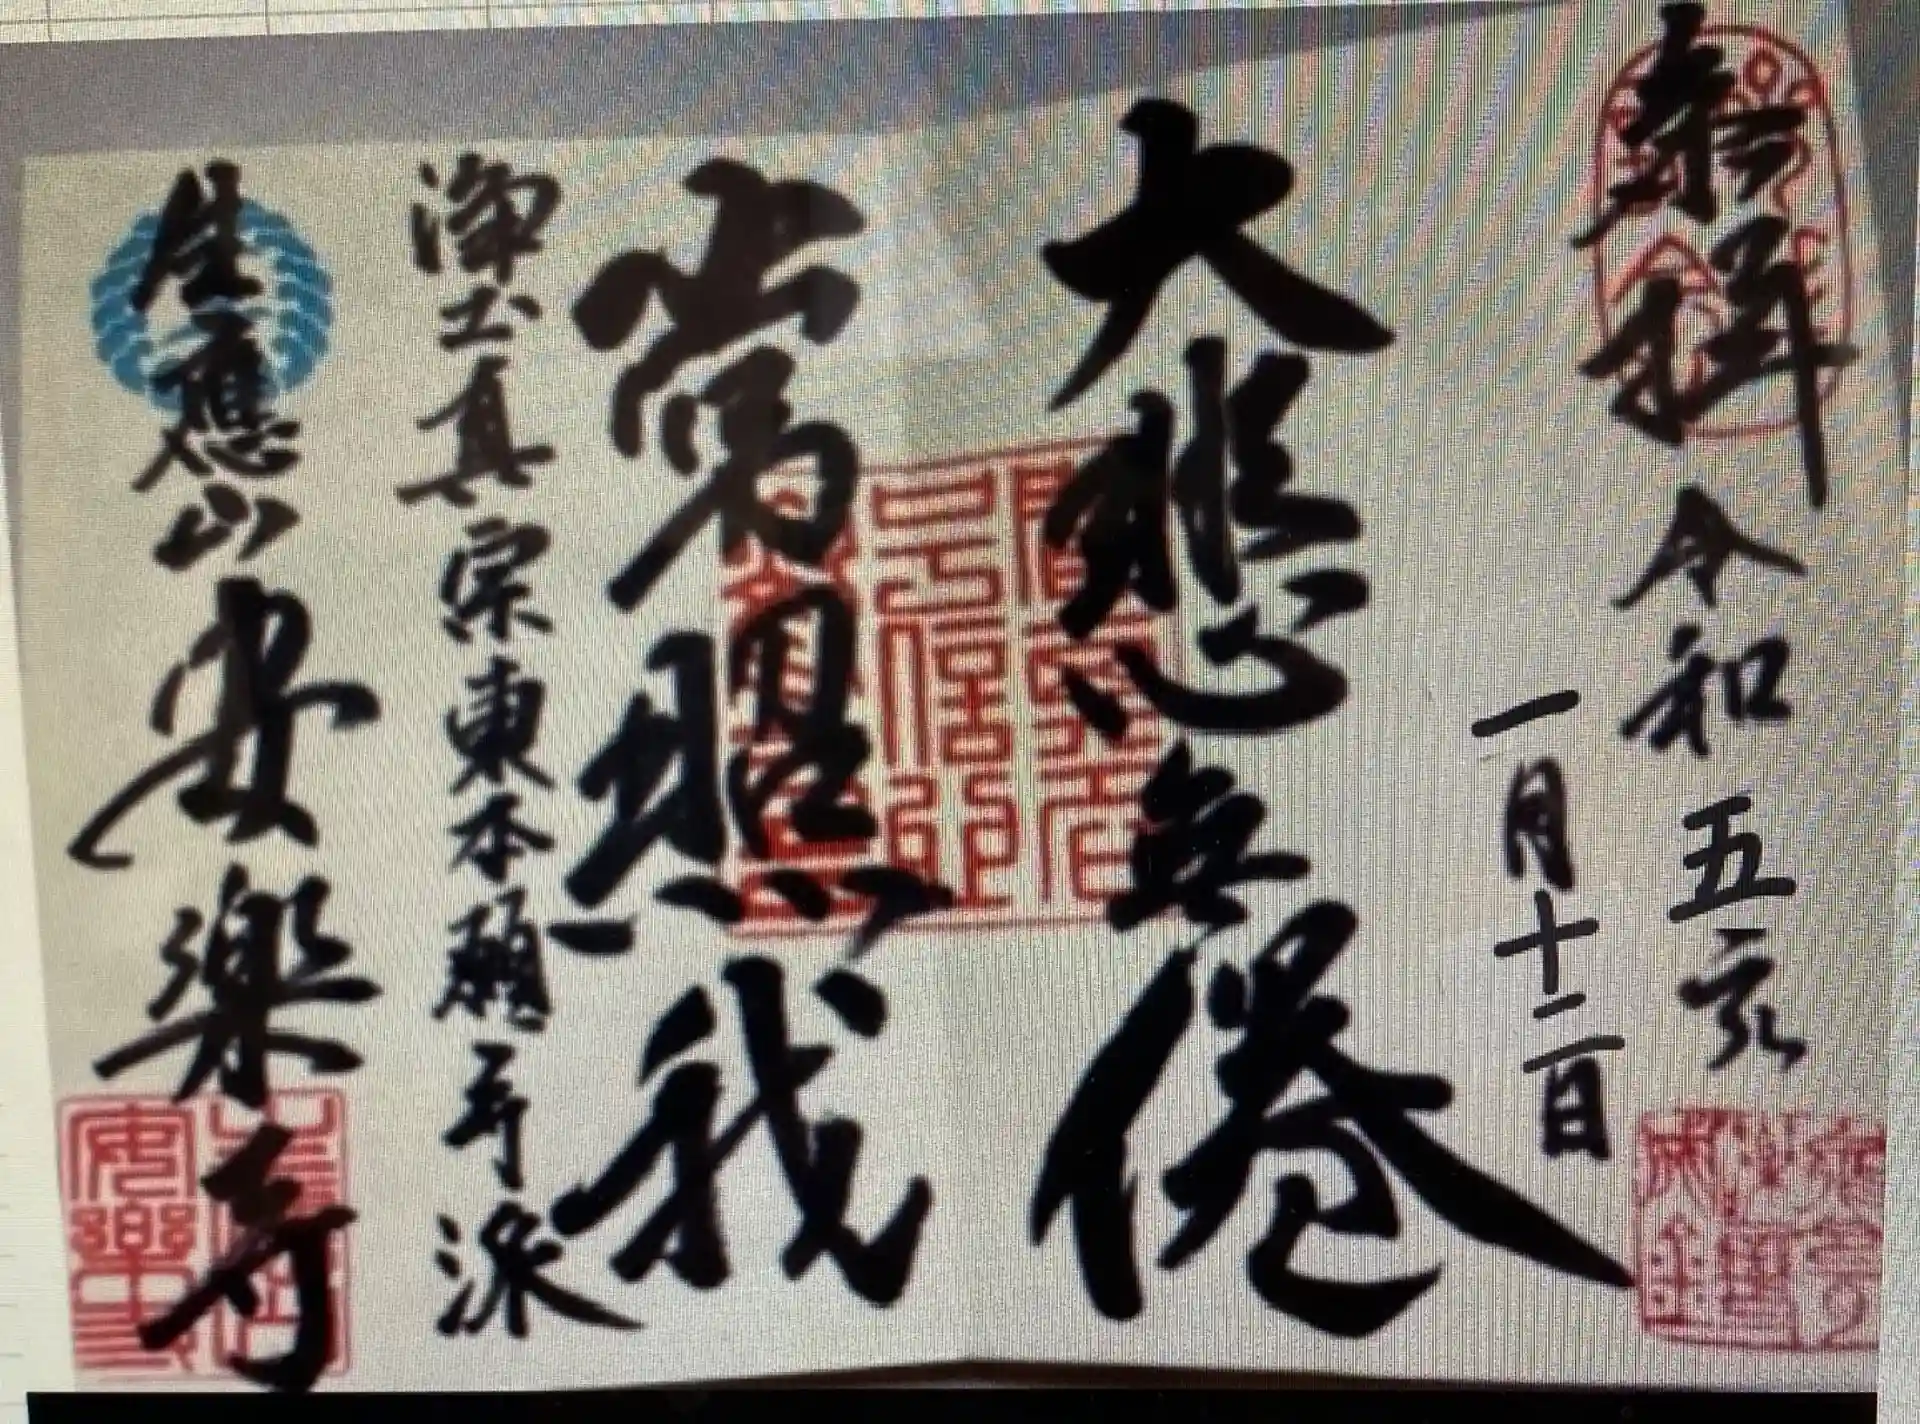 奉拝 令和五
一月十二日
大悲無倦
常照我
浄土真宗東本願寺派
生應山安楽寺